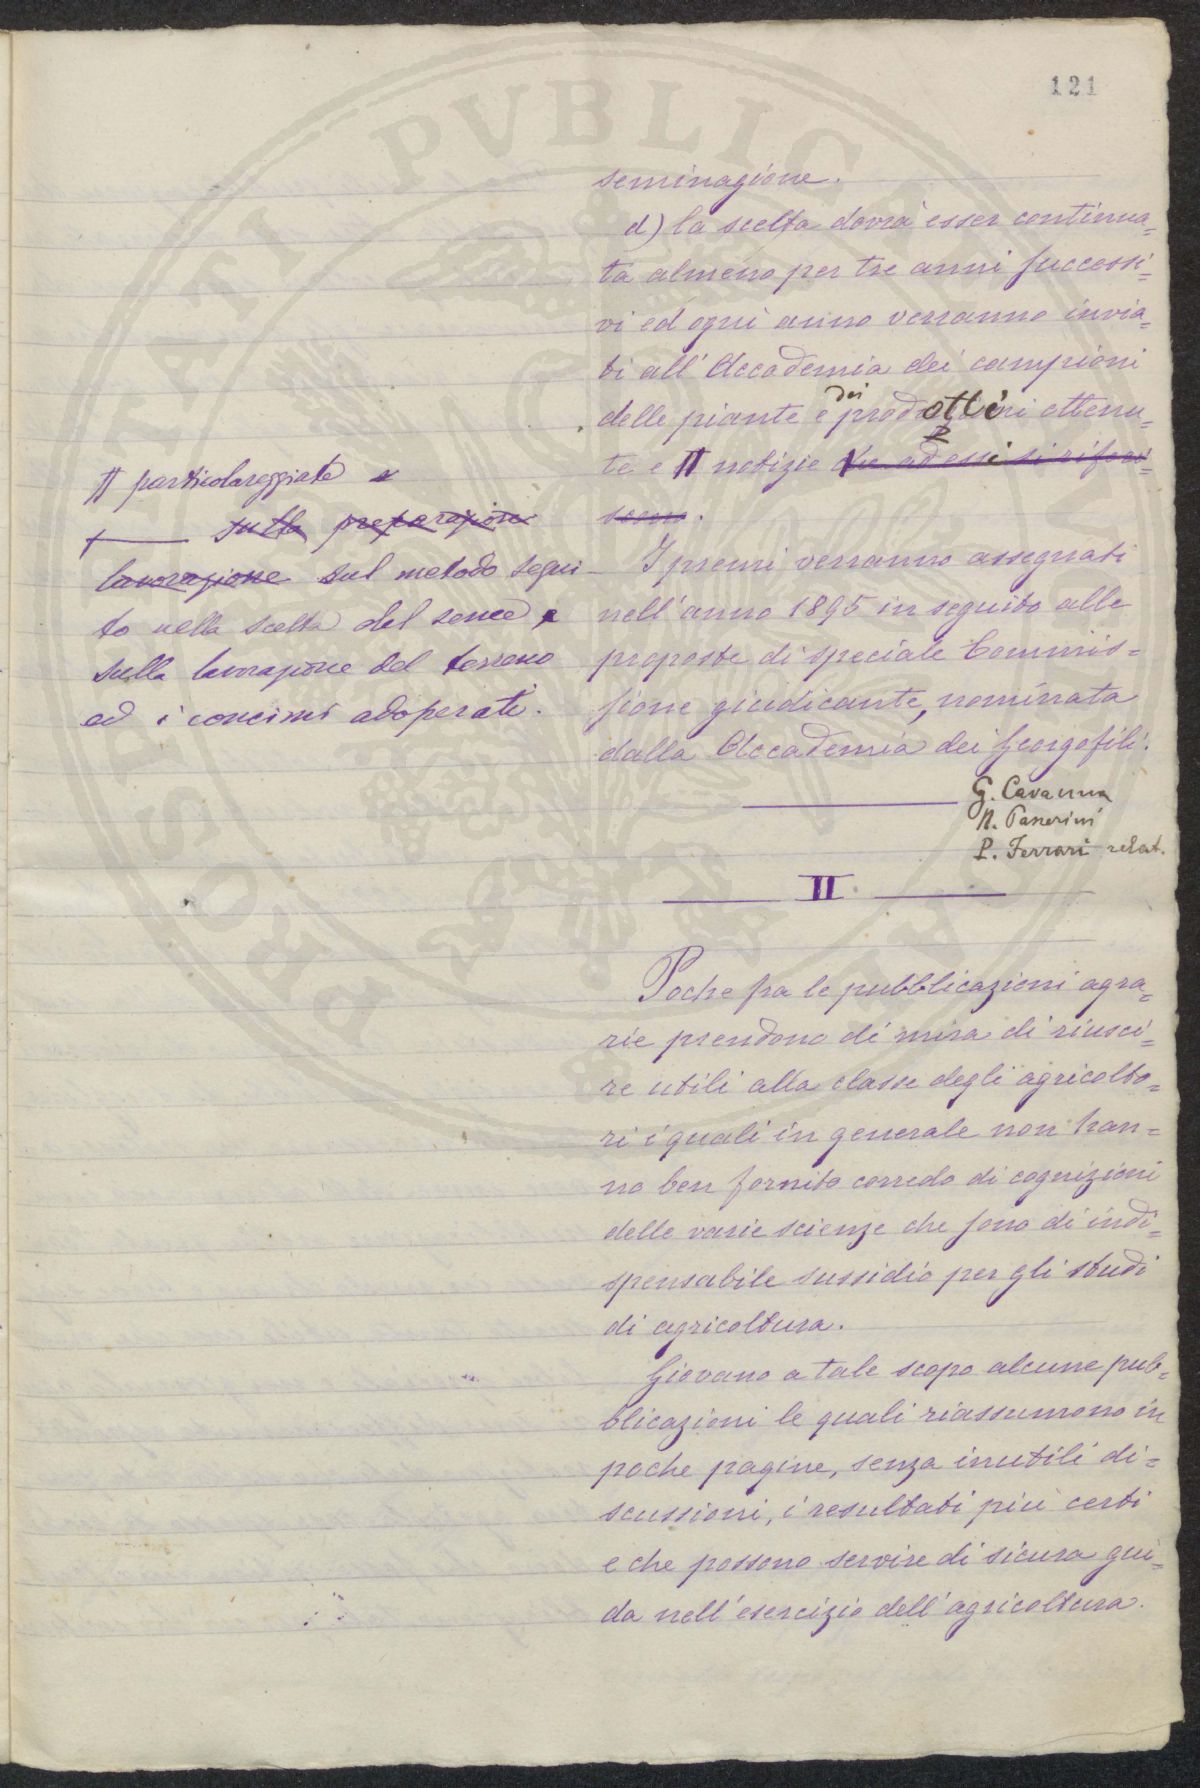 121
seminagione.
d) la scelta dovrà esser continua=
ta almeno per tre anni successi=
vi ed ogni anno verranno invia=
ti all'Accademia dei campioni
dei
delle piante e prodotti ottenu=
te e # notizie che ad essi si riferi=
scono.
I premi verranno assegnati
nell'anno 1895 in seguito alle
proposte di speciale Commis=
sione giudicante, nominata
dalla Accademia dei Georgofili.
G. Cavanna
N. Passerini
P. Ferrari relat.
# particolareggiate
sulla preparazione
lavorazione sul metodo segui
to nella scelta del seme e
sulla lavorazione del terreno
ed i concimi adoperati.
II.
Poche fra le pubblicazioni agra=
rie prendono di mira di riusci=
re utili alla classe degli agricolto=
ri i quali in generale non han=
no ben fornito corredo di cognizioni
delle varie scienze che sono di indi=
spensabile sussidio per gli studi
di agricoltura.
Giovano a tale scopo alcune pub=
blicazioni le quali riassumono in
poche pagine, senza inutili di=
scussioni, i resultati più certi
e che possono servire di sicura gui=
da nell'esercizio dell'agricoltura.